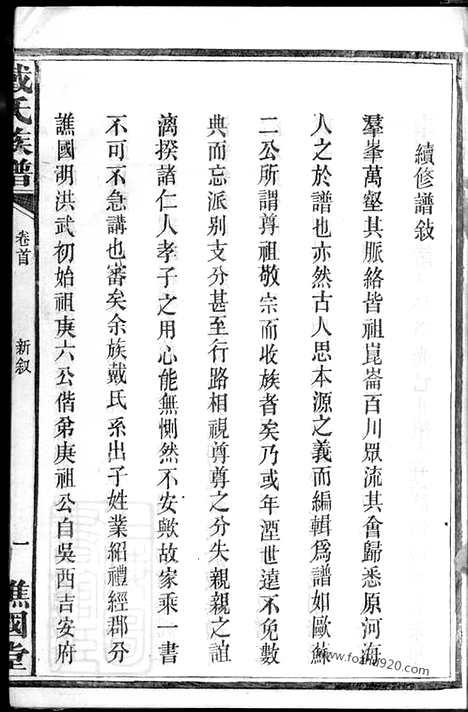 續修譜敍
羣峯萬壑其脈絡皆祖崑崙百川眾流其會歸悉原河海
人之於譜也亦然古人思本源之義而編輯爲譜如歐蘇
二公所謂尊祖敬宗而收族者矣乃或年湮世遠不免數
典而忘派别支分甚至行路相視尊尊之分失親親之誼
漓揆諸仁人孝子之用心能無惻然不安歟故家乘一書
不可不急講也審矣余族戴氏系出子姓業紹禮經郡分
譙國明洪武初始祖庚六公偕弟庚祖公自吳西吉安府
戴氏族譜
卷首
新叙
一
譙國堂
www.fozhu920.com